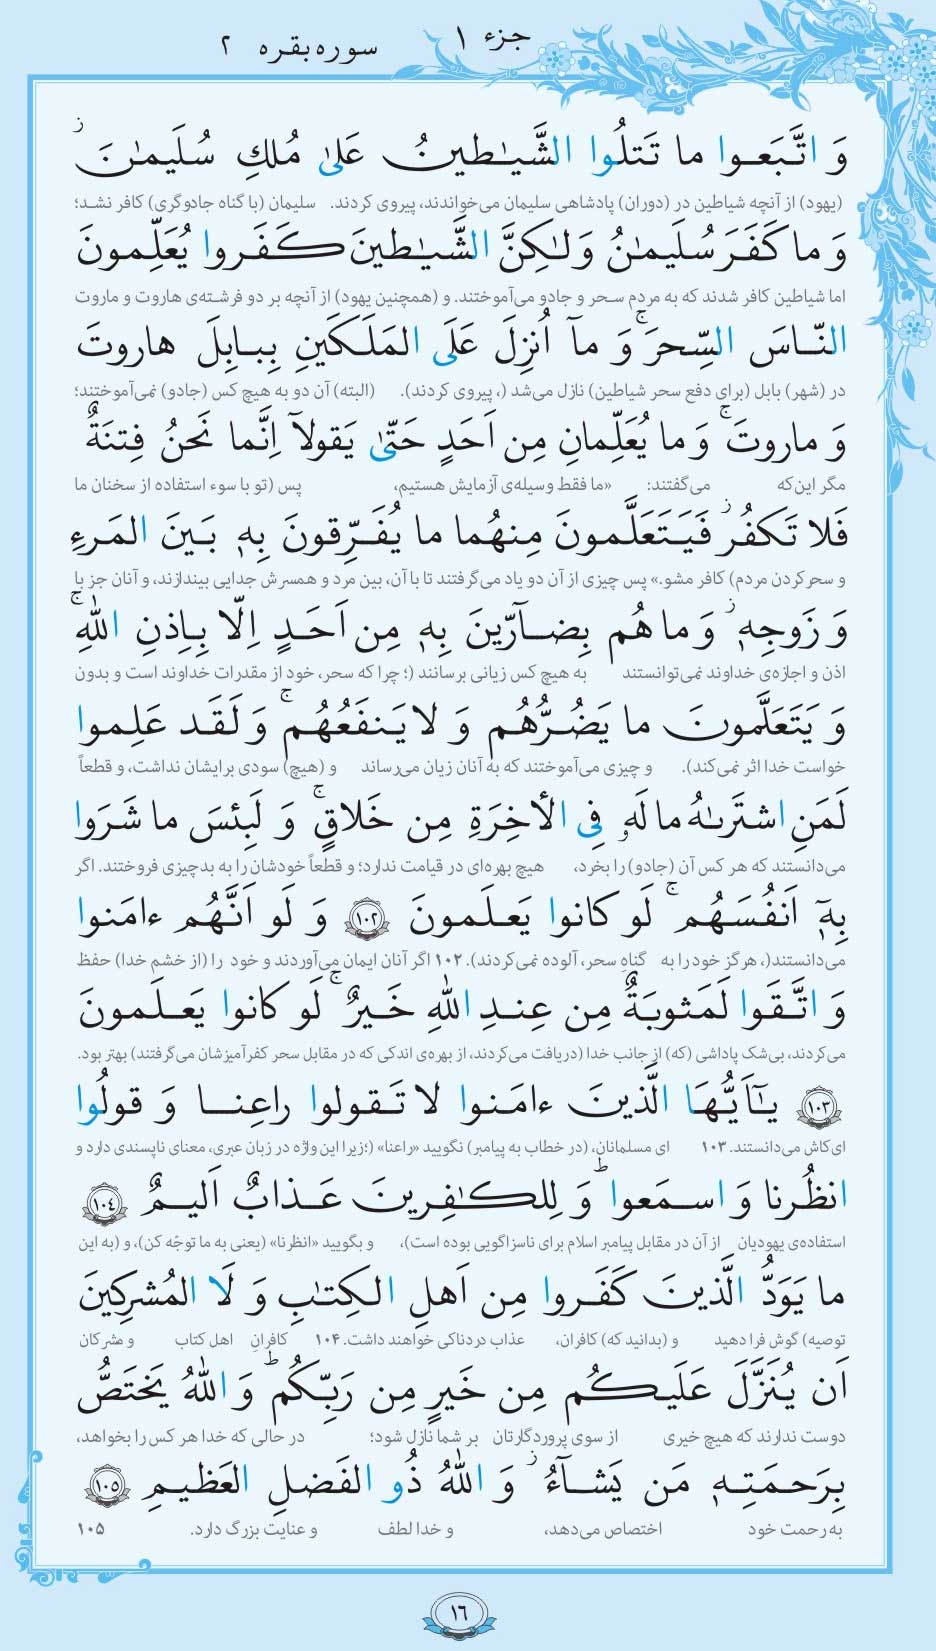 جزء ۱
سوره بقره ۲
وَ اتَّبَعوا ما تَتلُوا الشَّیـٰطینُ عَلیٰ مُلكِ سُلَیمـٰنَ ۖ
(یهود) از آنچه شیاطین در (دوران) پادشاهی سلیمان می‌خواندند، پیروی کردند. سلیمان (با گناه جادوگری) کافر نشد؛
وَ ما كَفَرَ سُلَیمـٰنُ وَ لـٰكِنَّ الشَّیـٰطینَ كَفَروا یُعَلِّمونَ
اما شیاطین کافر شدند که به مردم سحر و جادو می‌آموختند. و (همچنین یهود) از آنچه بر دو فرشته‌ی هاروت و ماروت
النّاسَ السِّحرَ ۚ وَ ماۤ اُنزِلَ عَلَی المَلَكَینِ بِبابِلَ هاروتَ
در (شهر) بابل (برای دفع سحر شیاطین) نازل می‌شد (، پیروی کردند). (البته) آن دو به هیچ کس (جادو) نمی‌آموختند؛
وَ ماروتَ ۚ وَ ما یُعَلِّمانِ مِن اَحَدٍ حَتّیٰ یَقولاۤ اِنَّما نَحنُ فِتنَةٌ
مگر این‌که می‌گفتند: «ما فقط وسیله‌ی آزمایش هستیم، پس (تو با سوء استفاده از سخنان ما
فَلا تَكفُر ۖ فَیَتَعَلَّمونَ مِنهُما ما یُفَرِّقونَ بِهٖ بَینَ المَرءِ
و سحرکردن مردم) کافر مشو.» پس چیزی از آن دو یاد می‌گرفتند تا با آن، بین مرد و همسرش جدایی بیندازند، و آنان جز با
وَ زَوجِهٖ ۚ وَ ما هُم بِضاۤرّینَ بِهٖ مِن اَحَدٍ اِلّا بِاِذنِ اللّٰهِ ۚ
اذن و اجازه‌ی خداوند نمی‌توانستند به هیچ کس زیانی برسانند (؛ چرا که سحر، خود از مقدرات خداوند است و بدون
وَ یَتَعَلَّمونَ ما یَضُرُّهُم وَ لا یَنفَعُهُم ۚ وَ لَقَد عَلِموا
خواست خدا اثر نمی‌کند). و چیزی می‌آموختند که به آنان زیان می‌رساند و (هیچ) سودی برایشان نداشت، و قطعاً
لَمَنِ اشتَرىٰهُ ما لَهٗ فِی الأٰخِرَةِ مِن خَلاقٍ ۚ وَ لَبِئسَ ما شَرَوا
می‌دانستند که هر کس آن (جادو) را بخرد، هیچ بهره‌ای در قیامت ندارد؛ و قطعاً خودشان را به بدچیزی فروختند. اگر
بِهٖۤ اَنفُسَهُم ۚ لَو كانوا یَعلَمونَ ﴿۱۰۲﴾ وَ لَو اَنَّهُم ءامَنوا
می‌دانستند (، هرگز خود را به گناهِ سحر، آلوده نمی‌کردند). ۱۰۲ اگر آنان ایمان می‌آوردند و خود را (از خشم خدا) حفظ
وَ اتَّقَوا لَمَثوبَةٌ مِن عِندِ اللّٰهِ خَیرٌ ۚ لَو كانوا یَعلَمونَ
می‌کردند، بی‌شک پاداشی (که) از جانب خدا (دریافت می‌کردند، از بهره‌ی اندکی که در مقابل سحر کفرآمیزشان می‌گرفتند) بهتر بود.
﴿۱۰۳﴾ یـٰۤاَیُّهَا الَّذینَ ءامَنوا لا تَقولوا راعِنا وَ قولُوا
ای کاش می‌دانستند. ۱۰۳ ای مسلمانان، (در خطاب به پیامبر) نگویید «راعنا» (؛ زیرا این واژه در زبان عبری، معنای ناپسندی دارد و
انظُرنا وَ اسمَعوا ۗ وَ لِلكـٰفِرینَ عَذابٌ اَلیمٌ ﴿۱۰۴﴾
استفاده‌ی یهودیان از آن در مقابل پیامبر اسلام برای ناسزاگویی بوده است)، و بگویید «انظرنا» (یعنی به ما توجّه کن)، و (به این
ما یَوَدُّ الَّذینَ كَفَروا مِن اَهلِ الكِتـٰبِ وَ لَا المُشرِكینَ
توصیه) گوش فرا دهید و (بدانید که) کافران، عذاب دردناکی خواهند داشت. ۱۰۴ کافرانِ اهل کتاب و مشرکان
اَن یُنَزَّلَ عَلَیكُم مِن خَیرٍ مِن رَبِّكُم ۗ وَ اللّٰهُ یَختَصُّ
دوست ندارند که هیچ خیری از سوی پروردگارتان بر شما نازل شود؛ در حالی که خدا هر کس را بخواهد،
بِرَحمَتِهٖ مَن یَشاۤءُ ۚ وَ اللّٰهُ ذُو الفَضلِ العَظیمِ ﴿۱۰۵﴾
به رحمت خود اختصاص می‌دهد، و خدا لطف و عنایت بزرگ دارد. ۱۰۵
۱۶